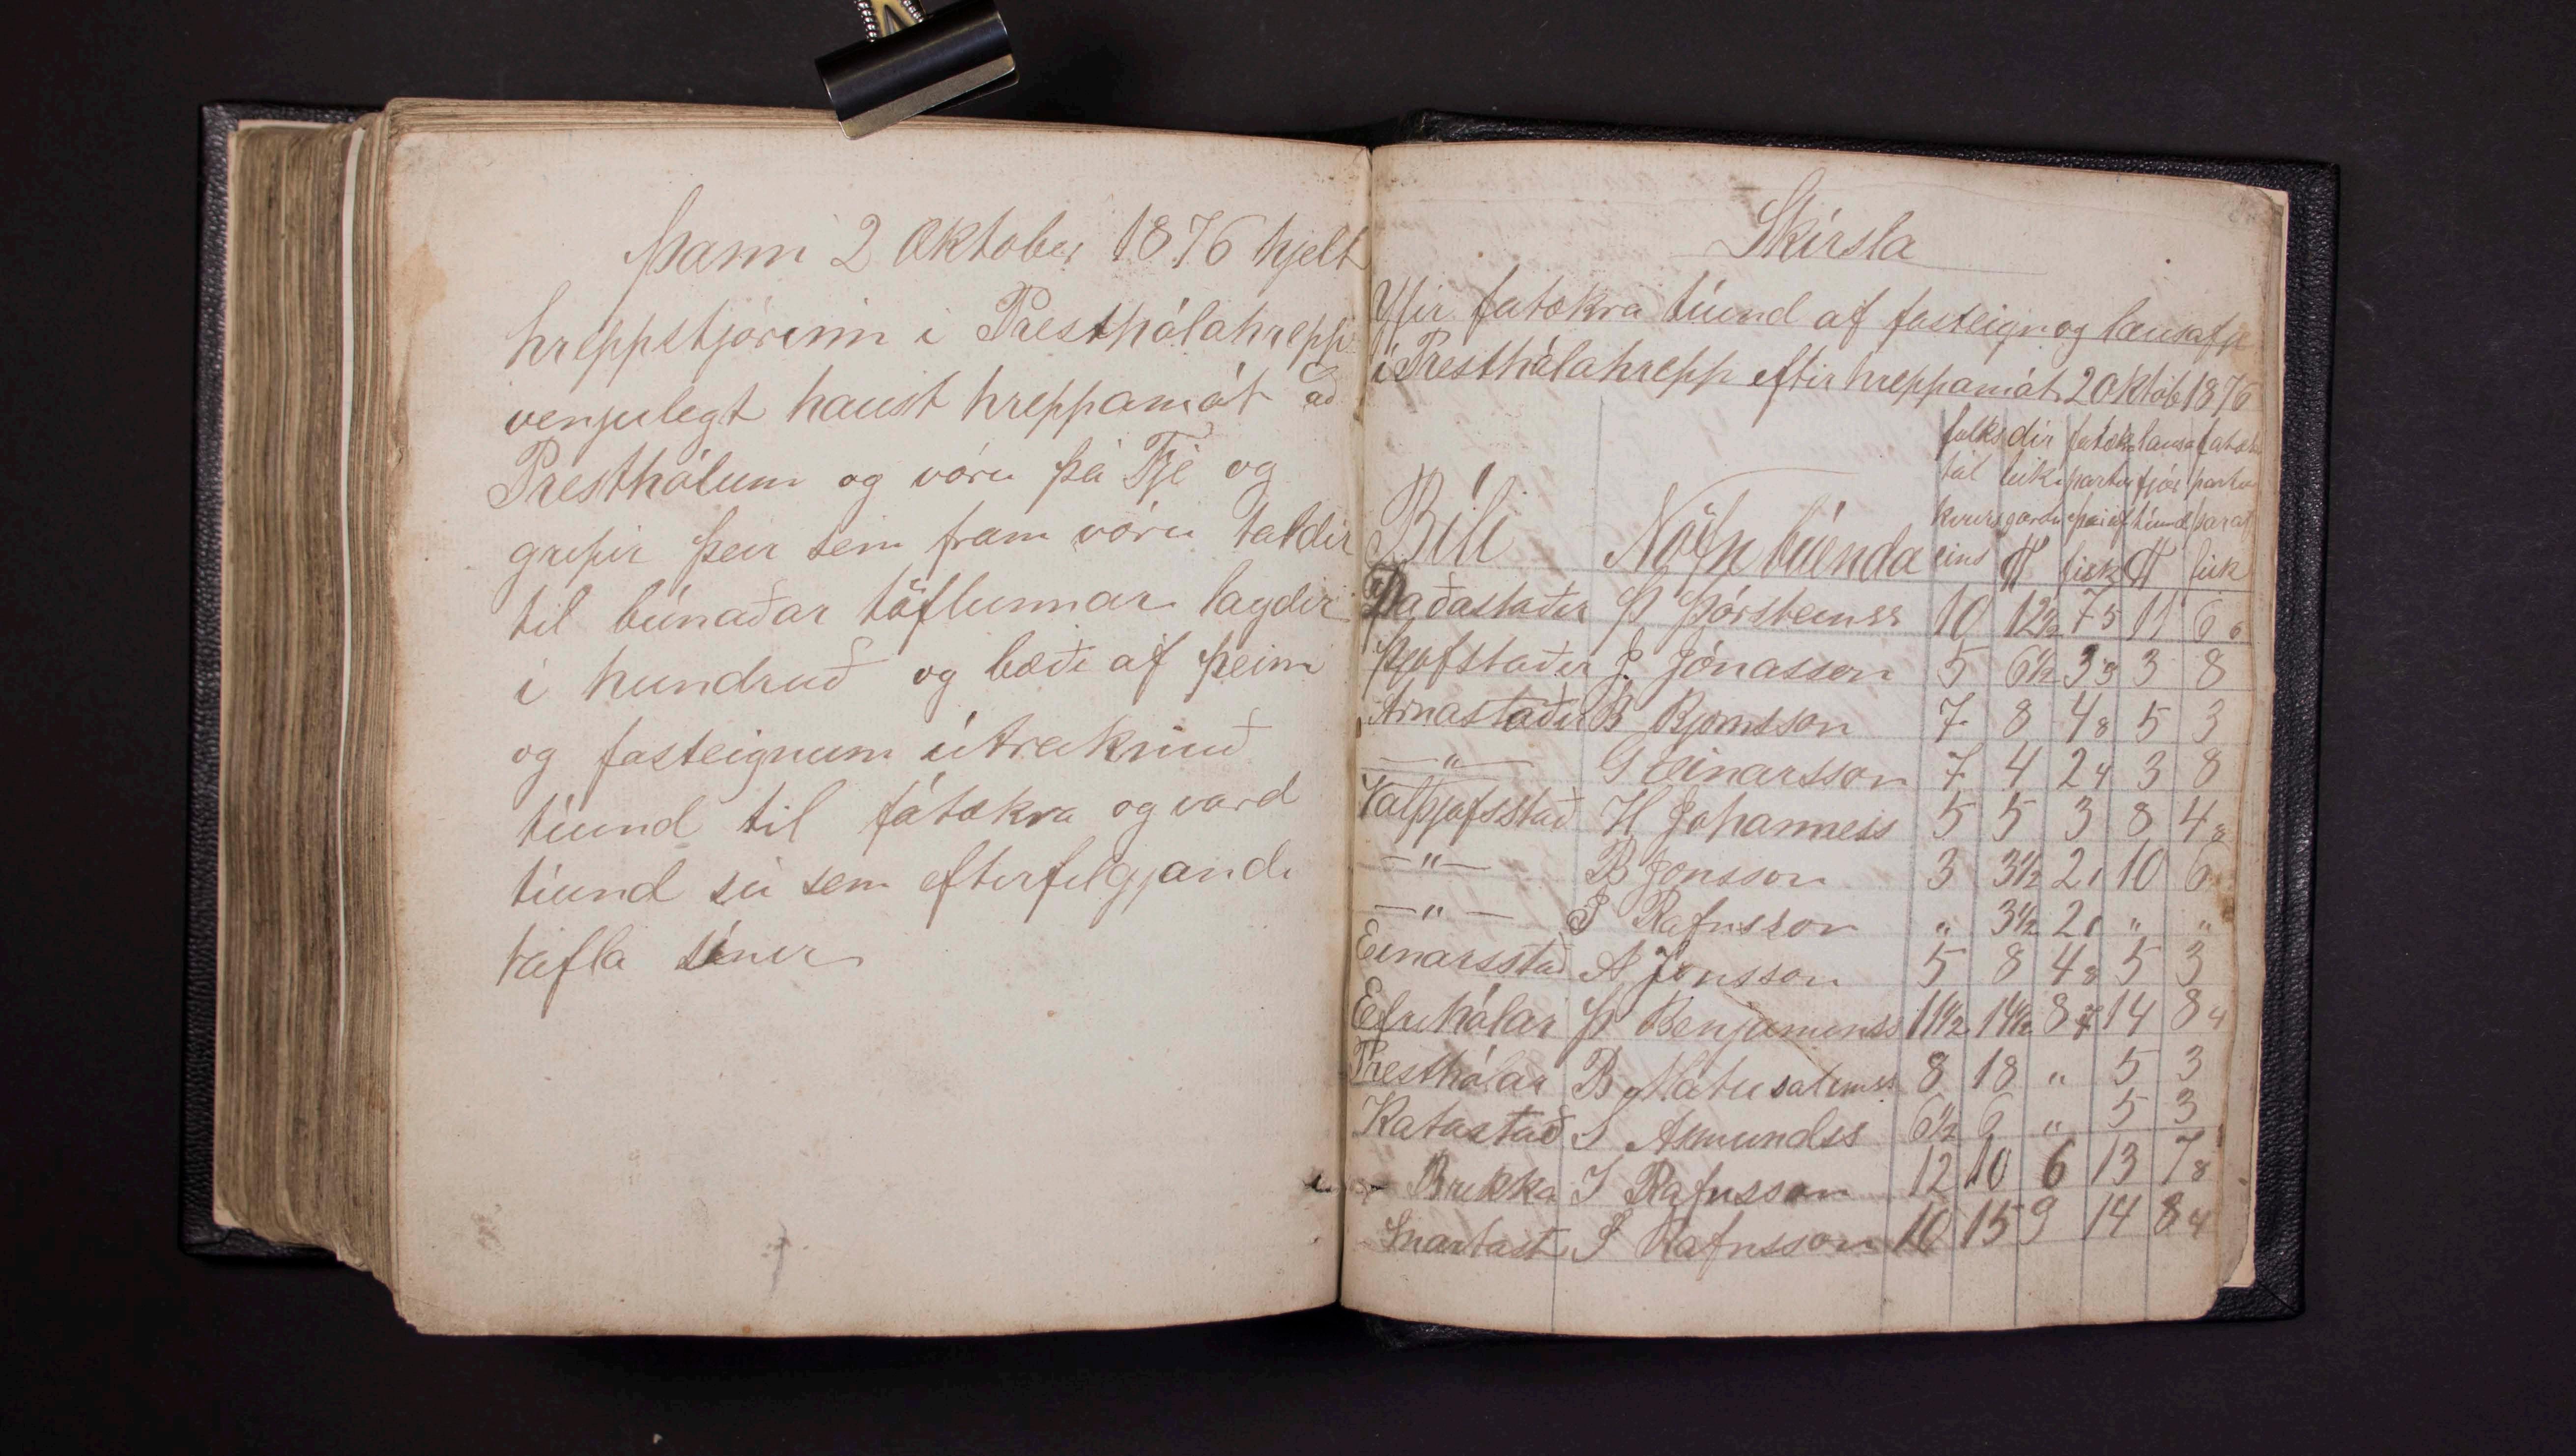 Þann 2 Oktober 1876 hjelt
hreppstjórinn i Presthólahrepp
venjulegt haust hreppamót að
Presthólum og vóru þá Fje og
gripir þeir sem fram vóru taldir
til búnaðar töflunnar lagdir
i hundruð og bæði af þeim
og fasteignum útreiknuð
tíund til fátækra og vard
tíund sú sem efterfelgjandi
tafla sínir
Skírsla
Yfir fatækra tíund af fasteign og lausafje
i Presthólahrepp eftir hreppamót 2 Oktob 1876
Bíli Nöfn búenda
folks tal kvurs eins
dír leik garda ℔
fatækra partur þaraf fisk
lausa fjár tíund ℔
fatækra partur þaraf fisk
Daðastaðir Þ Þórsteinss 10 12½ 7 5 11 6 6
Þjofstaðir J. Jónasson 5 6½ 3 9 3 8
Arnastaðir B Bjornsson 7 8 4 8 5 3
— " — G Einarsson 7 4 2 4 3 8
Valþjofsstað H Johanness 5 5 3 8 4 8
— " — B Jonsson 3 3½ 2 1 10 6
— " — S Rafnsson " 3½ 2 1 " "
Einarsstað A Jónsson 5 8 4 8 5 3
Efrihólar Þ Benjaminss 11½ 14½ 8 7 14 8 4
Presthólar B Matusalemss 8 18 " 5 3
Katastað S Asmundss 6½ 6 " 5 3
Brekka I Rafnsson 12 10 6 13 7 8
Snartast S Rafnsson 10 15 9 14 8 4